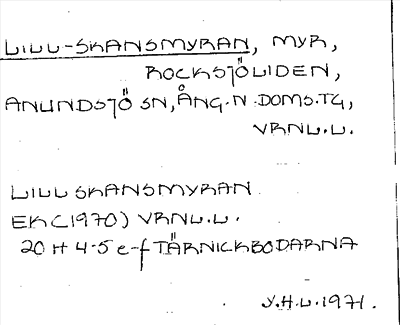 LILL-SKANSMYRAN, MYR,
ROCKSJÖLIDEN,
ANUNDSJÖ SN, ÅNG. N. DOMS. TG,
VRNL.L.
LILL SKANSMYRAN
EK (1970) VRNL.L.
20 H 4-5 e-f TÄRNICKBODARNA
Y.H.L. 1971.